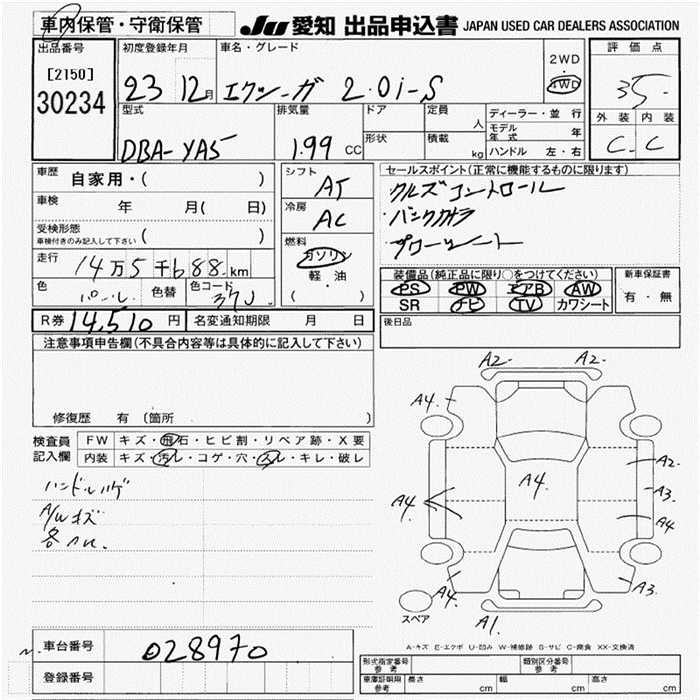 車内保管・守衛保管
JU 愛知 出品申込書 JAPAN USED CAR DEALERS ASSOCIATION
出品番号
[2150]
30234
初度登録年月
23 12月
車名・グレード
エクシーガ 2.0i-S
2WD
・
4WD
評価点
3.5
外装 内装
C C
型式
DBA-YA5
排気量
1.99 CC
ドア
形状
定員
人
積載
kg
ディーラー・並行
モデル年式 年
ハンドル 左・右
車歴
自家用・( )
車検
年 月( 日)
受検形態
車検付きのみ記入して下さい ( )
走行
14万5千688km
色
パール
色替
色コード
37J
シフト
AT
冷房
AC
燃料
ガソリン
軽・油
( )
セールスポイント(正常に機能するものに限ります)
クルズコントロール
バックカメラ
装備品(純正品に限り○をつけてください)
PS PW エアB AW
SR ナビ TV カワシート
新車保証書
有・無
R券 14,510円
名変通知期限 月 日
後日品
注意事項申告欄(不具合内容等は具体的に記入して下さい)
修復歴 有 (箇所 )
検査員記入欄
FW キズ・飛石・ヒビ割・リペア跡・X要
内装 キズ・汚レ・コゲ・穴・スレ・キレ・破レ
ハンドルハゲ
A/Wキズ
A2 A2
A4
A2
A3
A4
A4
A4
A4
A3
A1
スペア
A-キズ E-エクボ U-凹み W-補修跡 S-サビ C-腐食 XX-交換済
車台番号
028970
登録番号
形式指定番号
参考
類別区分番号
参考
車庫証明用
参考
長さ cm
幅 cm
高さ cm